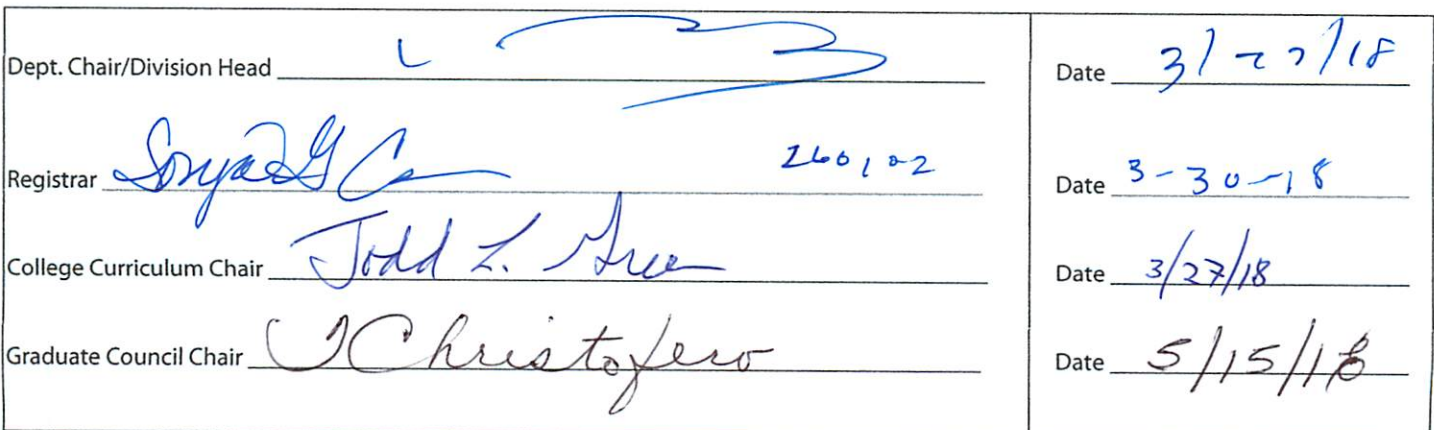 Dept. Chair/Division Head Date 3/27/18
Registrar Sonya G C 260102 Date 3-30-18
College Curriculum Chair Todd L. Green Date 3/27/18
Graduate Council Chair T Christofero Date 5/15/18